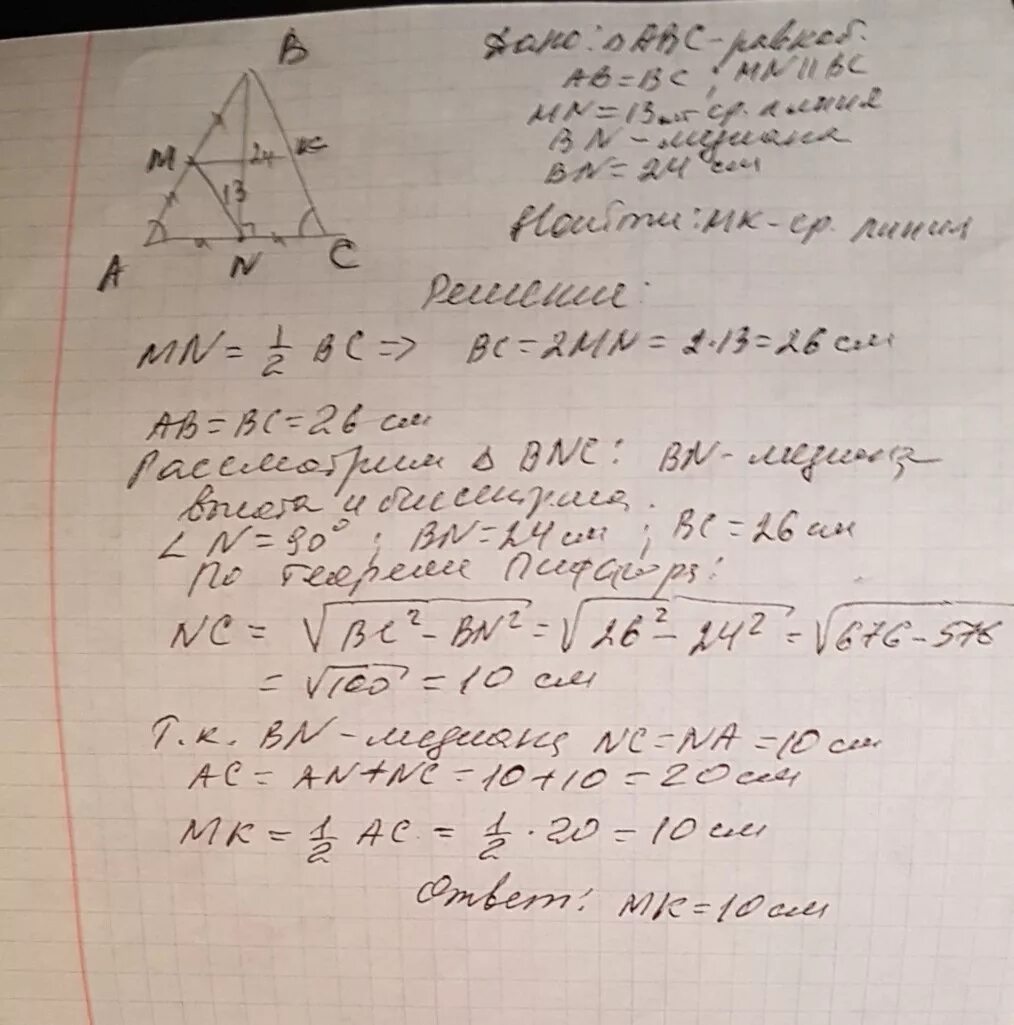 B
M 24 K
13
A N C
Дано: △ABC - равноб.
AB = BC ; MN || BC
MN = 13 см ср. линия
BN - медиана
BN = 24 см
Найти: MK - ср. линия
Решение:
MN = 1/2 BC => BC = 2MN = 2·13 = 26 см
AB = BC = 26 см
Рассмотрим △ BNC: BN - медиана
высота и биссектриса.
∠N = 90° ; BN = 24 см ; BC = 26 см
По теореме Пифагора:
NC = √(BC² - BN²) = √(26² - 24²) = √(676 - 576
= √100 = 10 см
Т.к. BN - медиана NC = NA = 10 см
AC = AN + NC = 10 + 10 = 20 см
MK = 1/2 AC = 1/2 · 20 = 10 см
Ответ: MK = 10 см